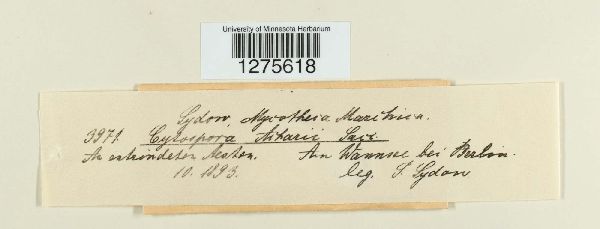 University of Minnesota Herbarium
1275618
Sydow, Mycotheca Marchica.
3971. Cytospora Aikarii Sacc.
An entrindeten Aesten. Am Wannsee bei Berlin.
10. 1893. leg. P. Sydow